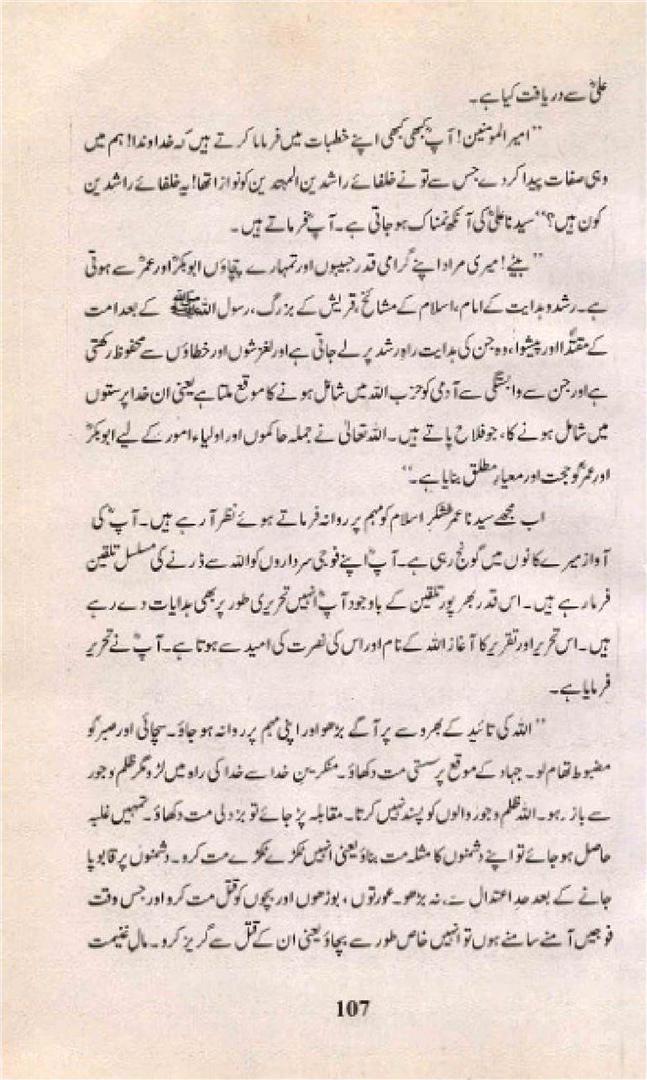 علیؓ سے دریافت کیا ہے۔
”امیر المومنین! آپؓ کبھی کبھی اپنے خطبات میں فرمایا کرتے ہیں کہ خداوندا! ہم میں
وہی صفات پیدا کر دے جس سے تو نے خلفائے راشدین المہدین کو نوازا تھا! یہ خلفائے راشدین
کون ہیں؟“ سیدنا علیؓ کی آنکھ نمناک ہو جاتی ہے۔ آپؓ فرماتے ہیں۔
”بیٹے! میری مراد اپنے گرامی قدر حبیبوں اور تمہارے چچاؤں ابوبکرؓ اور عمرؓ سے ہوتی
ہے۔ رشد و ہدایت کے امام، اسلام کے مشائخ، قریش کے بزرگ، رسول اللہ ﷺ کے بعد امت
کے مقتدا اور پیشوا، وہ جن کی ہدایت راہ رشد پر لے جاتی ہے اور لغزشوں اور خطاؤں سے محفوظ رکھتی
ہے اور جن سے وابستگی سے آدمی کو حزب اللہ میں شامل ہونے کا موقع ملتا ہے یعنی ان خدا پرستوں
میں شامل ہونے کا، جو فلاح پاتے ہیں۔ اللہ تعالیٰ نے جملہ حاکموں اور اولیاء امور کے لیے ابوبکرؓ
اور عمرؓ کو حجت اور معیار مطلق بنایا ہے۔“
اب مجھے سیدنا عمرؓ لشکر اسلام کو مہم پر روانہ فرماتے ہوئے نظر آ رہے ہیں۔ آپؓ کی
آواز میرے کانوں میں گونج رہی ہے۔ آپؓ اپنے فوجی سرداروں کو اللہ سے ڈرنے کی مسلسل تلقین
فرما رہے ہیں۔ اس قدر بھرپور تلقین کے باوجود آپؓ انہیں تحریری طور پر بھی ہدایات دے رہے
ہیں۔ اس تحریر اور تقریر کا آغاز اللہ کے نام اور اس کی نصرت کی امید سے ہوتا ہے۔ آپؓ نے تحریر
فرمایا ہے۔
”اللہ کی تائید کے بھروسے پر آگے بڑھو اور اپنی مہم پر روانہ ہو جاؤ۔ سچائی اور صبر کو
مضبوط تھام لو۔ جہاد کے موقع پر سستی مت دکھاؤ۔ منکرین خدا سے خدا کی راہ میں لڑو مگر ظلم و جور
سے باز رہو۔ اللہ ظلم و جور والوں کو پسند نہیں کرتا۔ مقابلہ پڑ جائے تو بزدلی مت دکھاؤ۔ تمہیں غلبہ
حاصل ہو جائے تو اپنے دشمنوں کا مثلہ مت بناؤ یعنی انہیں ٹکڑے ٹکڑے مت کرو۔ دشمنوں پر قابو پا
جانے کے بعد حد اعتدال سے نہ بڑھو۔ عورتوں، بوڑھوں اور بچوں کو قتل مت کرو اور جس وقت
فوجیں آمنے سامنے ہوں تو انہیں خاص طور سے بچاؤ یعنی ان کے قتل سے گریز کرو۔ مال غنیمت
107